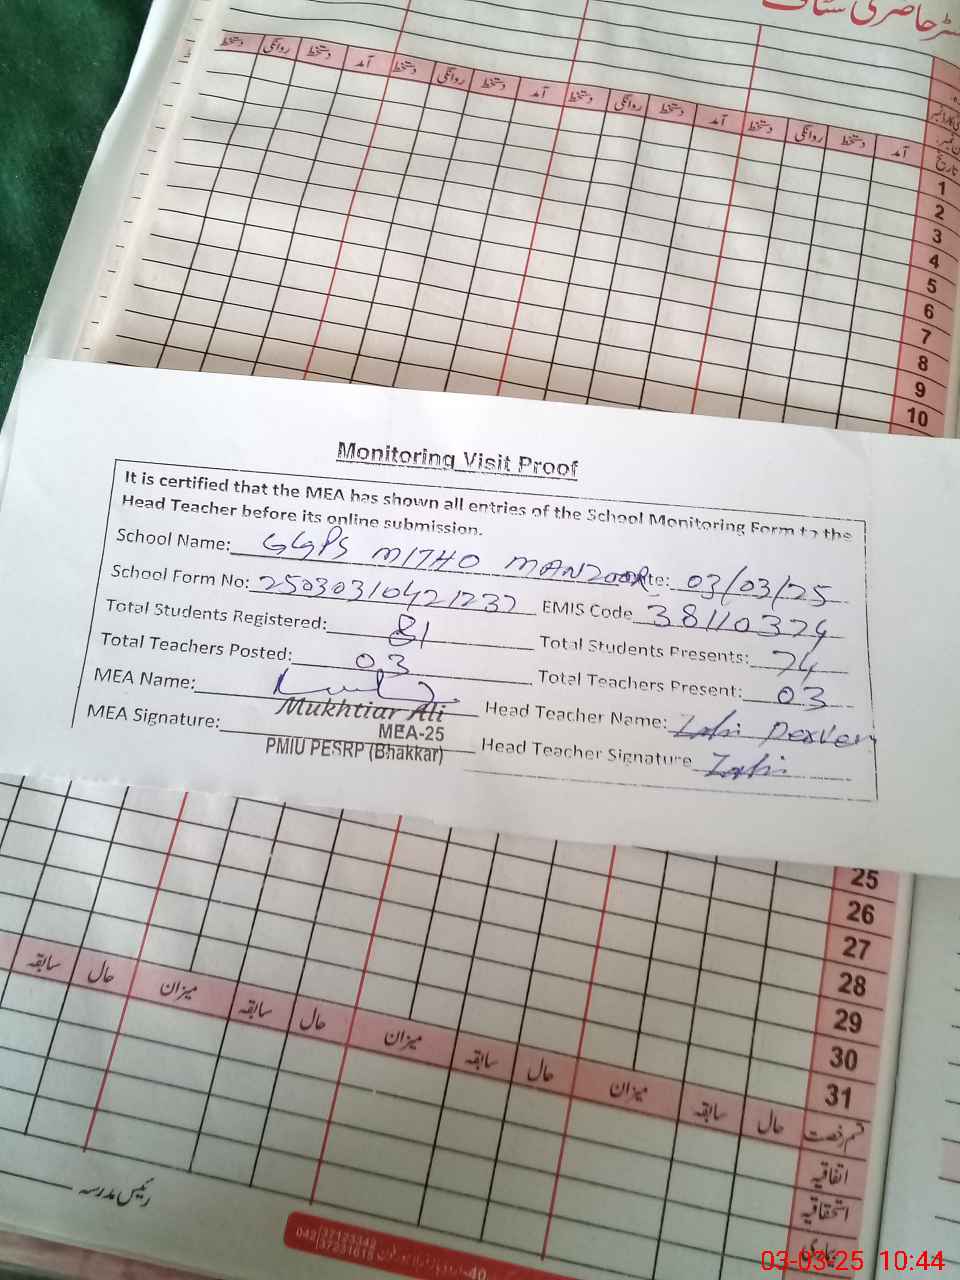 حاضری سٹاف
دستخط روانگی دستخط آمد دستخط روانگی دستخط آمد دستخط روانگی دستخط آمد دستخط روانگی دستخط آمد
تاریخ
1
2
3
4
5
6
7
8
9
10
Monitoring Visit Proof
It is certified that the MEA has shown all entries of the School Monitoring Form to the
Head Teacher before its online submission.
School Name: GGPS MITHO MANZOOR te: 03/03/25
School Form No: 25030310421232 EMIS Code 38110324
Total Students Registered: 81 Total Students Presents: 74
Total Teachers Posted: 03 Total Teachers Present: 03
MEA Name: Head Teacher Name:
Mukhtiar Ali
MEA-25
MEA Signature: Head Teacher Signature
PMIU PESRP (Bhakkar)
25
26
27
28
29
30
31
قسم رخصت حال سابقہ میزان حال سابقہ میزان حال سابقہ میزان حال سابقہ
اتفاقیہ
استحقاقیہ
بیماری
رئیس مدرسہ
042 37123342
37231615
40
03-03-25 10:44